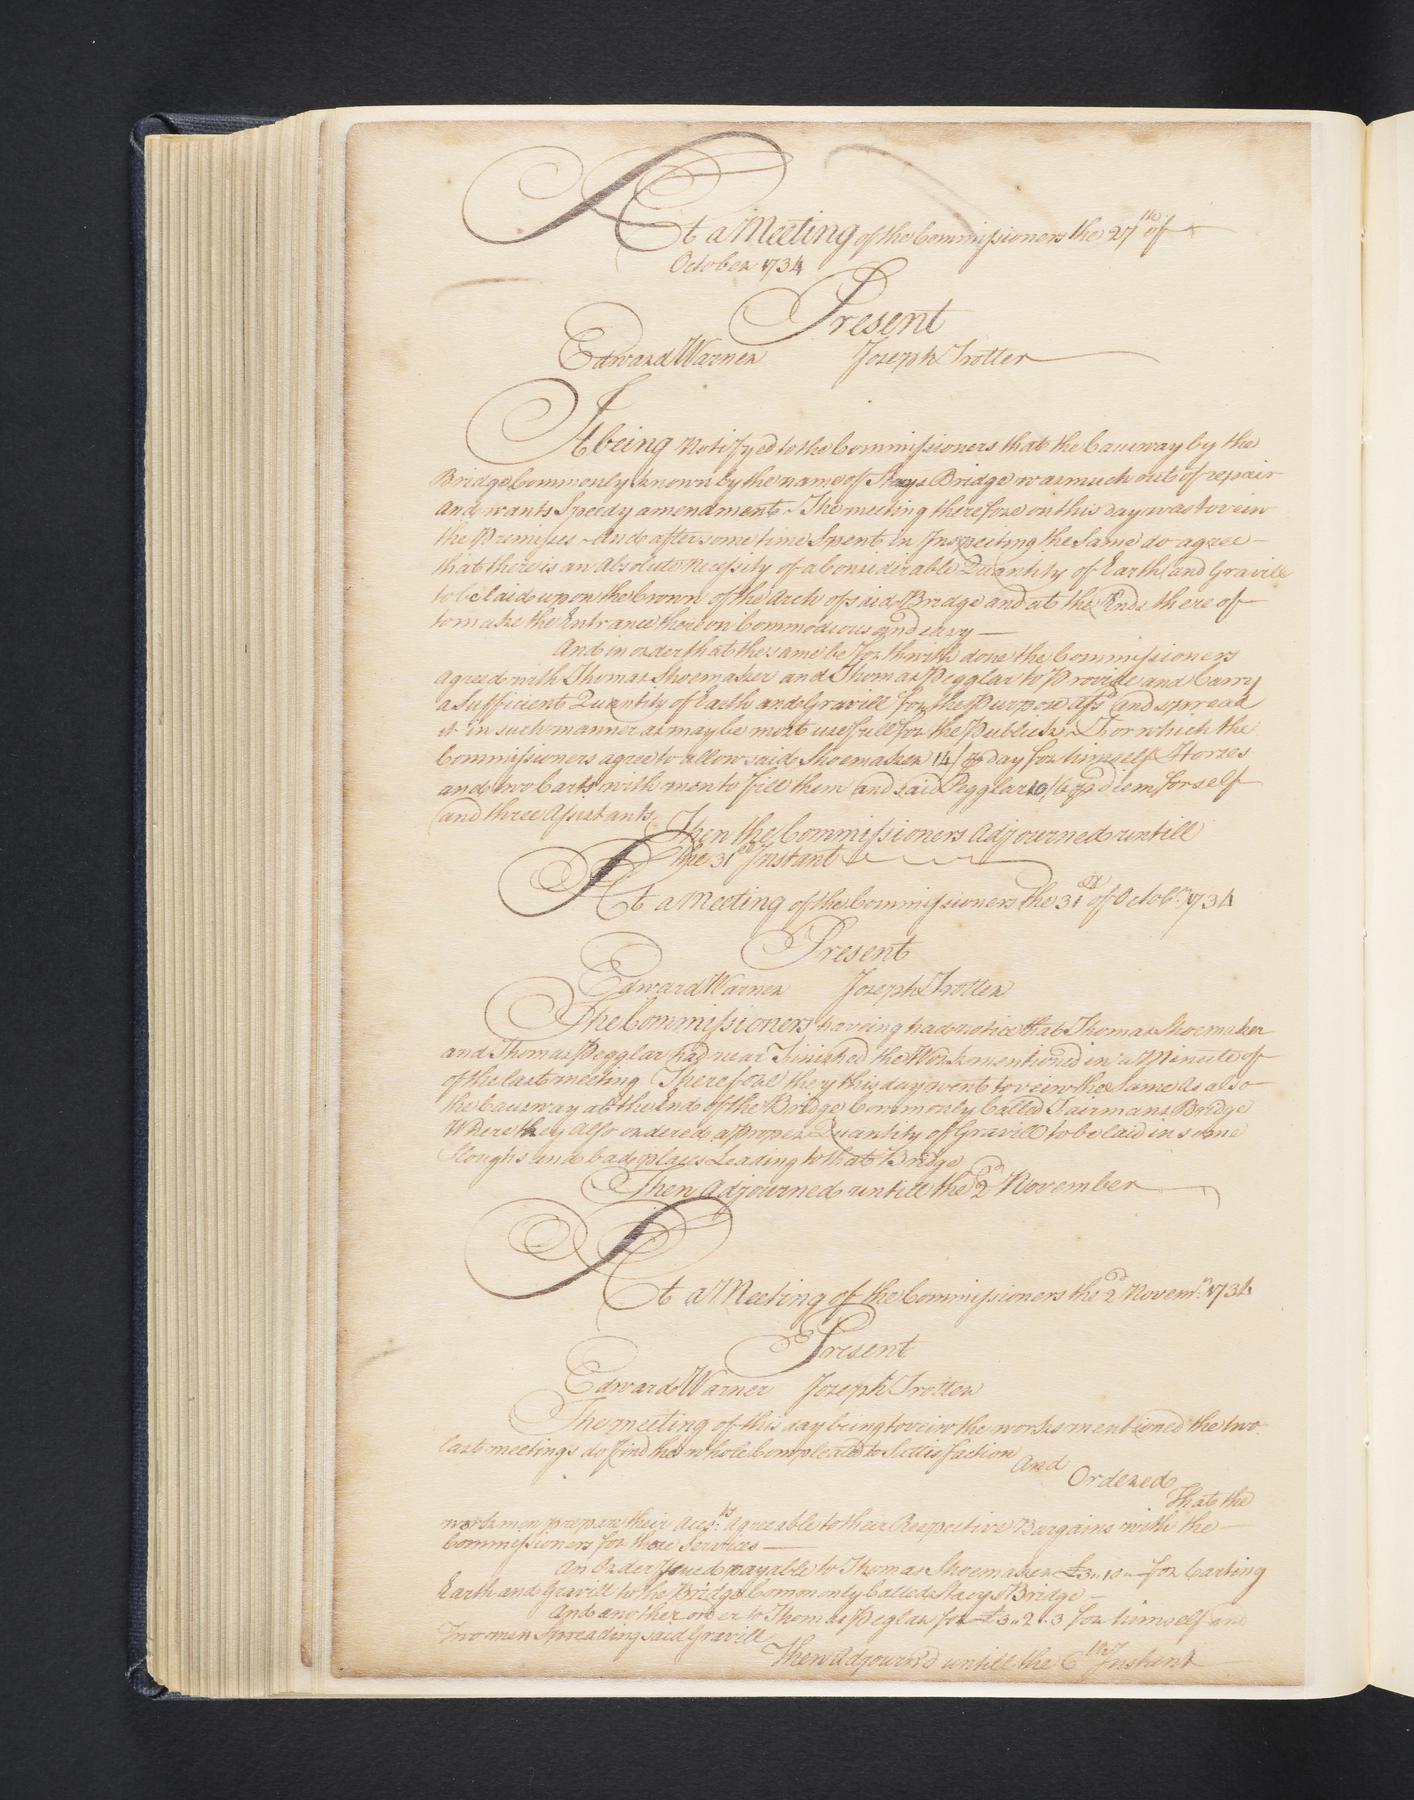 At a Meeting of the Commissioners the 27th of
October 1734
Present
Edward Warner Joseph Trotter
It being Notifyed to the Commissioners that the Causway by the
Bridge Commonly known by the name of Stacys Bridge was much out of repair
and wants Speedy amendment The meeting therefore on this day was to veiw
the Premises And after some time Spent in Inspecting the Same do agree
that there is an Absolute Necessity of a Considerable Quantity of Earth and Gravill
to be laid upon the Crown of the Arch of said Bridge and at the Ends thereof
to make the Entrance thereon Commodious and easy
And in order that the same be forthwith done the Commissioners
agreed with Thomas Shoemaker and Thomas Pegglar to Provide and Carry
a Sufficient Quantity of Earth and Gravill for the Purpose afsd and spread
it in such manner as may be most usefull for the Publick For which the
Commissioners agree to allow said Shoemaker 14/ p day for himself Horses
and two Carts with men to fill them and said Pegglar 10/6 p diem for self
and three Asistants
Then the Commissioners Adjourned untill
the 31st Instant
At a Meeting of the Commissioners the 31st of Octobr 1734
Present
Edward Warner Joseph Trotter
The Commissioners haveing had notice that Thomas Shoemaker
and Thomas Pegglar had near Finished the Work mentioned in a Minute of
of the last meeting Therefore they this day went to veiw the Same As also
the Causway at the End of the Bridge Commonly Called Fairmans Bridge
Where they Also ordered a Proper Quantity of Gravill to be laid in some
Sloughs and bad places Leading to that Bridge
Then Adjourned untill the 2d November
At a Meeting of the Commissioners the 2d Novemr 1734
Present
Edward Warner Joseph Trotter
The meeting of this day being to veiw the works mentioned the two
last meetings do find the whole Compleated to Sattisfaction And
Ordered
That the
workmen prepare their Accots agreeable to their Respective Bargains with the
Commissioners for those Services
An Order Issued payable to Thomas Shoemaker £3,,10,,— for Carting
Earth and Gravill to the Bridge Commonly Called Stacys Bridge
And another order to Thomas Peglar for £3,,2,,3 for himself and
Two men Spreading said Gravill
Then Adjourn'd untill the 6th Instant